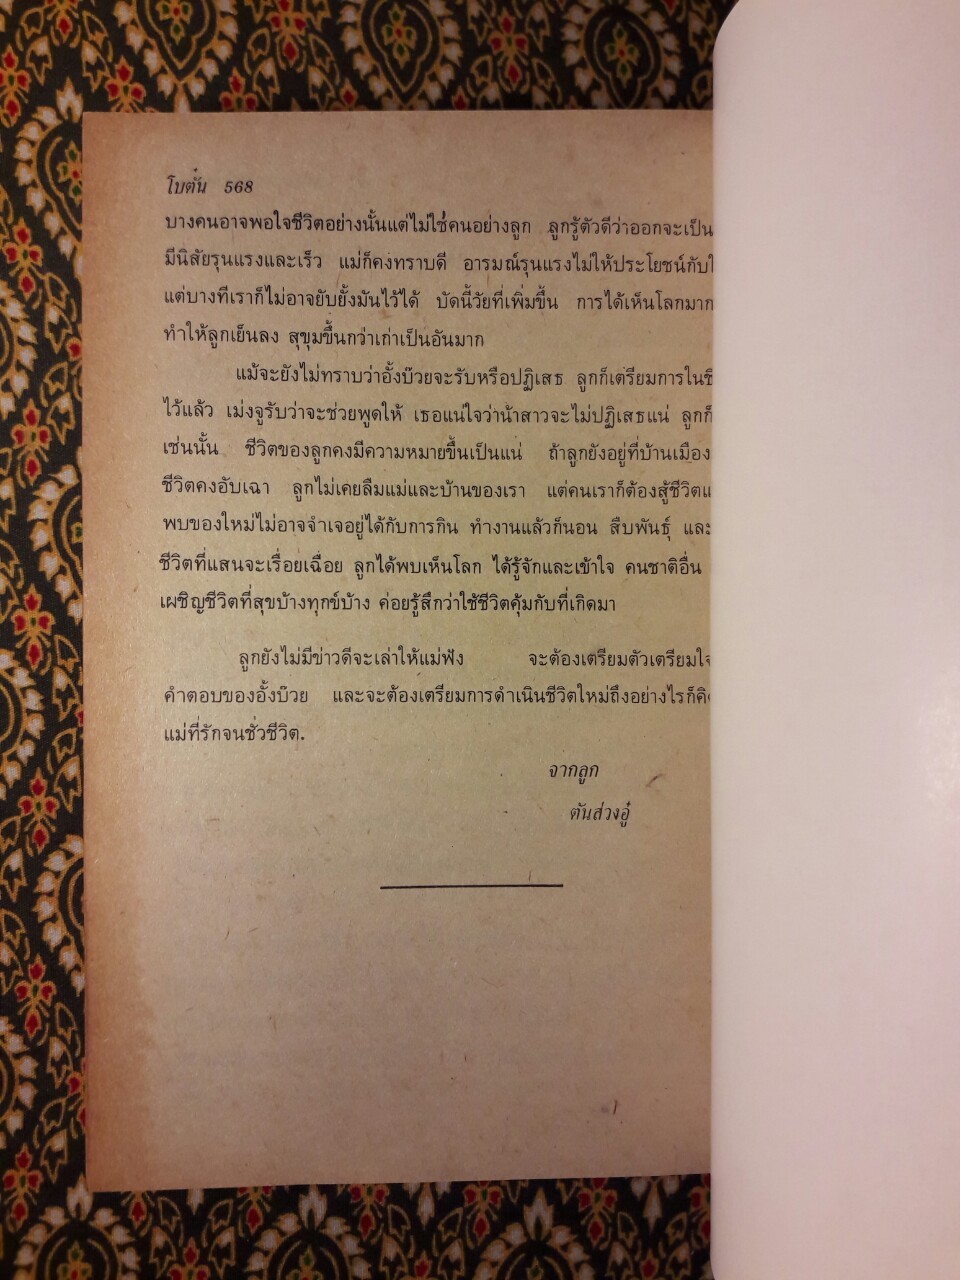 โบตั๋น 568
บางคนอาจพอใจชีวิตอย่างนั้นแต่ไม่ใช่คนอย่างลูก ลูกรู้ตัวดีว่าออกจะเป็น
มีนิสัยรุนแรงและเร็ว แม่ก็คงทราบดี อารมณ์รุนแรงไม่ให้ประโยชน์กับ
แต่บางทีเราก็ไม่อาจยับยั้งมันไว้ได้ บัดนี้วัยที่เพิ่มขึ้น การได้เห็นโลกมาก
ทำให้ลูกเย็นลง สุขุมขึ้นกว่าเก่าเป็นอันมาก
แม้จะยังไม่ทราบว่าอั้งบ๊วยจะรับหรือปฏิเสธ ลูกก็เตรียมการใน
ไว้แล้ว เม่งจูรับว่าจะช่วยพูดให้ เธอแน่ใจว่าน้าสาวจะไม่ปฏิเสธแน่ ลูกก็
เช่นนั้น ชีวิตของลูกคงมีความหมายขึ้นเป็นแน่ ถ้าลูกยังอยู่ที่บ้านเมือง
ชีวิตคงอับเฉา ลูกไม่เคยลืมแม่และบ้านของเรา แต่คนเราก็ต้องสู้ชีวิต
พบของใหม่ไม่อาจจำเจอยู่ได้กับการกิน ทำงานแล้วก็นอน สืบพันธุ์ และ
ชีวิตที่แสนจะเรื่อยเฉื่อย ลูกได้พบเห็นโลก ได้รู้จักและเข้าใจ คนชาติอื่น
เผชิญชีวิตที่สุขบ้างทุกข์บ้าง ค่อยรู้สึกว่าใช้ชีวิตคุ้มกับที่เกิดมา
ลูกยังไม่มีข่าวดีจะเล่าให้แม่ฟัง จะต้องเตรียมตัวเตรียมใจ
คำตอบของอั้งบ๊วย และจะต้องเตรียมการดำเนินชีวิตใหม่ถึงอย่างไรก็
แม่ที่รักจนชั่วชีวิต.
จากลูก
ตันส่วงอู๋